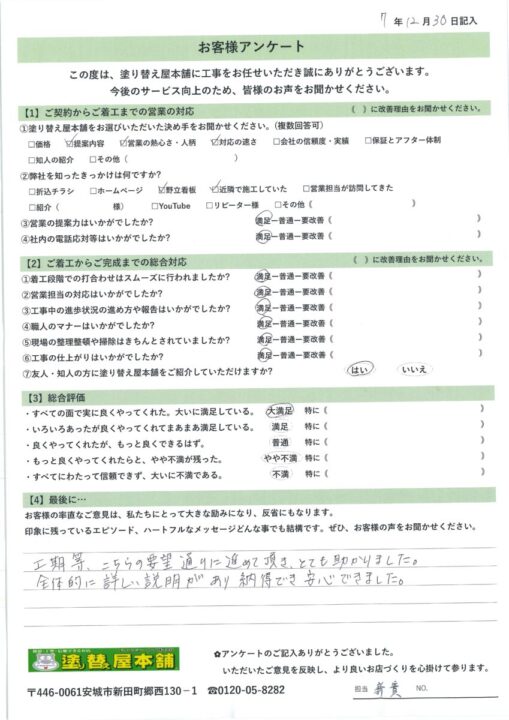 7年12月30日記入
お客様アンケート
この度は、塗り替え屋本舗に工事をお任せいただき誠にありがとうございます。
今後のサービス向上のため、皆様のお声をお聞かせください。
【1】ご契約からご着工までの営業の対応 《 》に改善理由をお聞かせください。
①塗り替え屋本舗をお選びいただいた決め手をお聞かせください。(複数回答可)
□価格 ☑提案内容 ☑営業の熱心さ・人柄 ☑対応の速さ □会社の信頼度・実績 □保証とアフター体制
□知人の紹介 □その他( )
②弊社を知ったきっかけは何ですか?
□折込チラシ □ホームページ ☑野立看板 ☑近隣で施工していた □営業担当が訪問してきた
□紹介( 様) □YouTube □リピーター様 □その他《 》
③営業の提案力はいかがでしたか? 満足ー普通ー要改善《 》
④社内の電話応対等はいかがでしたか? 満足ー普通ー要改善《 》
【2】ご着工からご完成までの総合対応 《 》に改善理由をお聞かせください。
①着工段階での打合わせはスムーズに行われましたか? 満足ー普通ー要改善《 》
②営業担当の対応はいかがでしたか? 満足ー普通ー要改善《 》
③工事中の進歩状況の進め方や報告はいかがでしたか? 満足ー普通ー要改善《 》
④職人のマナーはいかがでしたか? 満足ー普通ー要改善《 》
⑤現場の整理整頓や掃除はきちんとされていましたか? 満足ー普通ー要改善《 》
⑥工事の仕上がりはいかがでしたか? 満足ー普通ー要改善《 》
⑦友人・知人の方に塗り替え屋本舗をご紹介していただけますか? はい いいえ
【3】総合評価
・すべての面で実に良くやってくれた。大いに満足している。 大満足 特に《 》
・いろいろあったが良くやってくれてまあまあ満足している。 満足 特に《 》
・良くやってくれたが、もっと良くできるはず。 普通 特に《 》
・もっと良くやってくれたらと、やや不満が残った。 やや不満 特に《 》
・すべてにわたって信頼できず、大いに不満である。 不満 特に《 》
【4】最後に…
お客様の率直なご意見は、私たちにとって大きな励みになり、反省にもなります。
印象に残っているエピソード、ハートフルなメッセージどんな事でも結構です。ぜひ、お客様の声をお聞かせください。
工期等、こちらの要望通りに進めて頂き、とても助かりました。
全体的に詳しい説明があり納得でき安心できました。
塗り替え屋本舗
✿アンケートのご記入ありがとうございました。
いただいたご意見を反映し、より良いお店づくりを心掛けて参ります。
〒446-0061安城市新田町郷西130−1 ☎0120-05-8282
担当 新貴 NO.